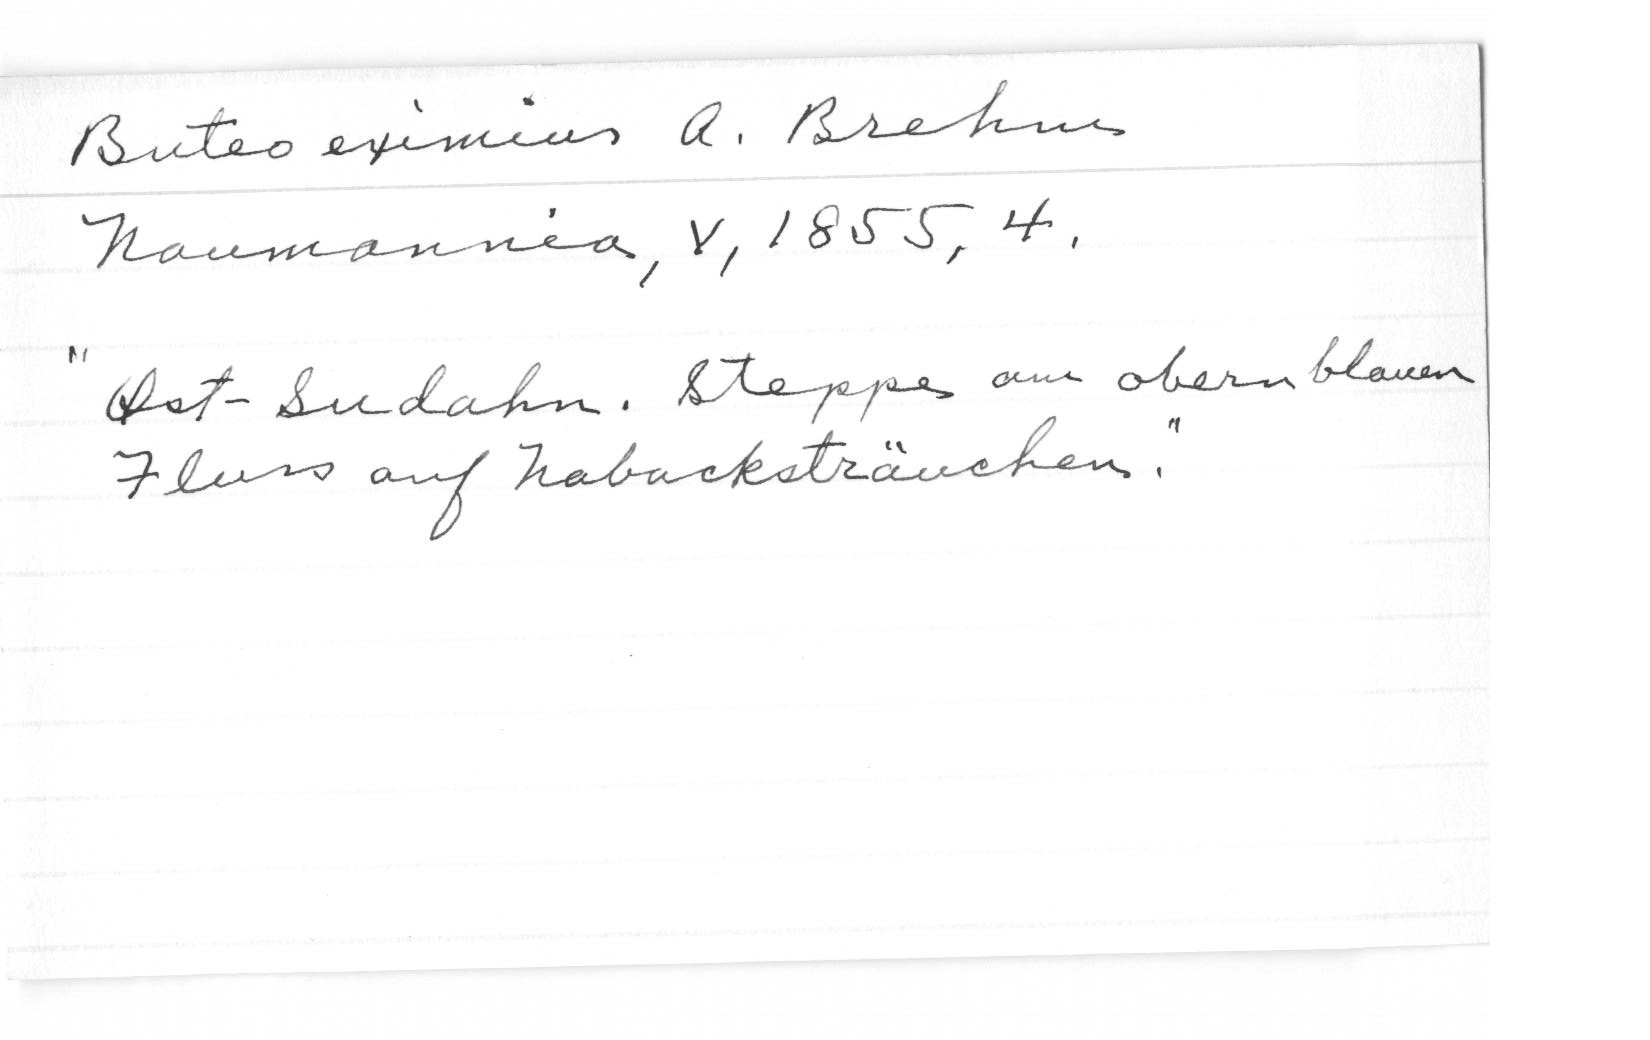 Buteo eximius A. Brehm
Naumannia, V, 1855, 4.
"Ost-Sudahn. Steppe am obern blauen
Fluss auf Nabacksträuchen."